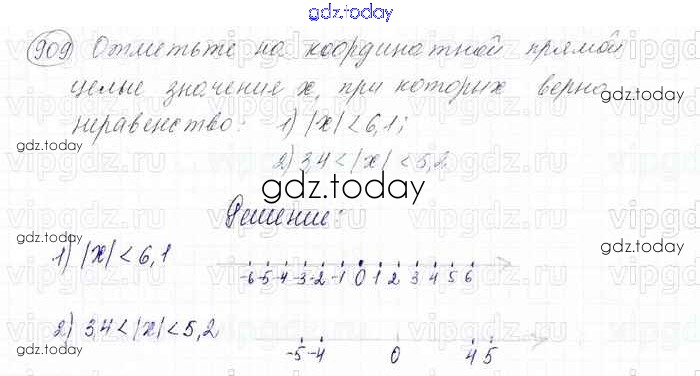 gdz.today
909 Отметьте на координатной прямой
целые значение x, при которых верно
неравенство: 1) |x| < 6,1;
2) 3,4 < |x| < 5,2
gdz.today
gdz.today
gdz.today
Решение:
1) |x| < 6,1
-6 -5 -4 -3 -2 -1 0 1 2 3 4 5 6
gdz.today
gdz.today
2) 3,4 < |x| < 5,2
-5 -4 0 4 5
gdz.today
gdz.today